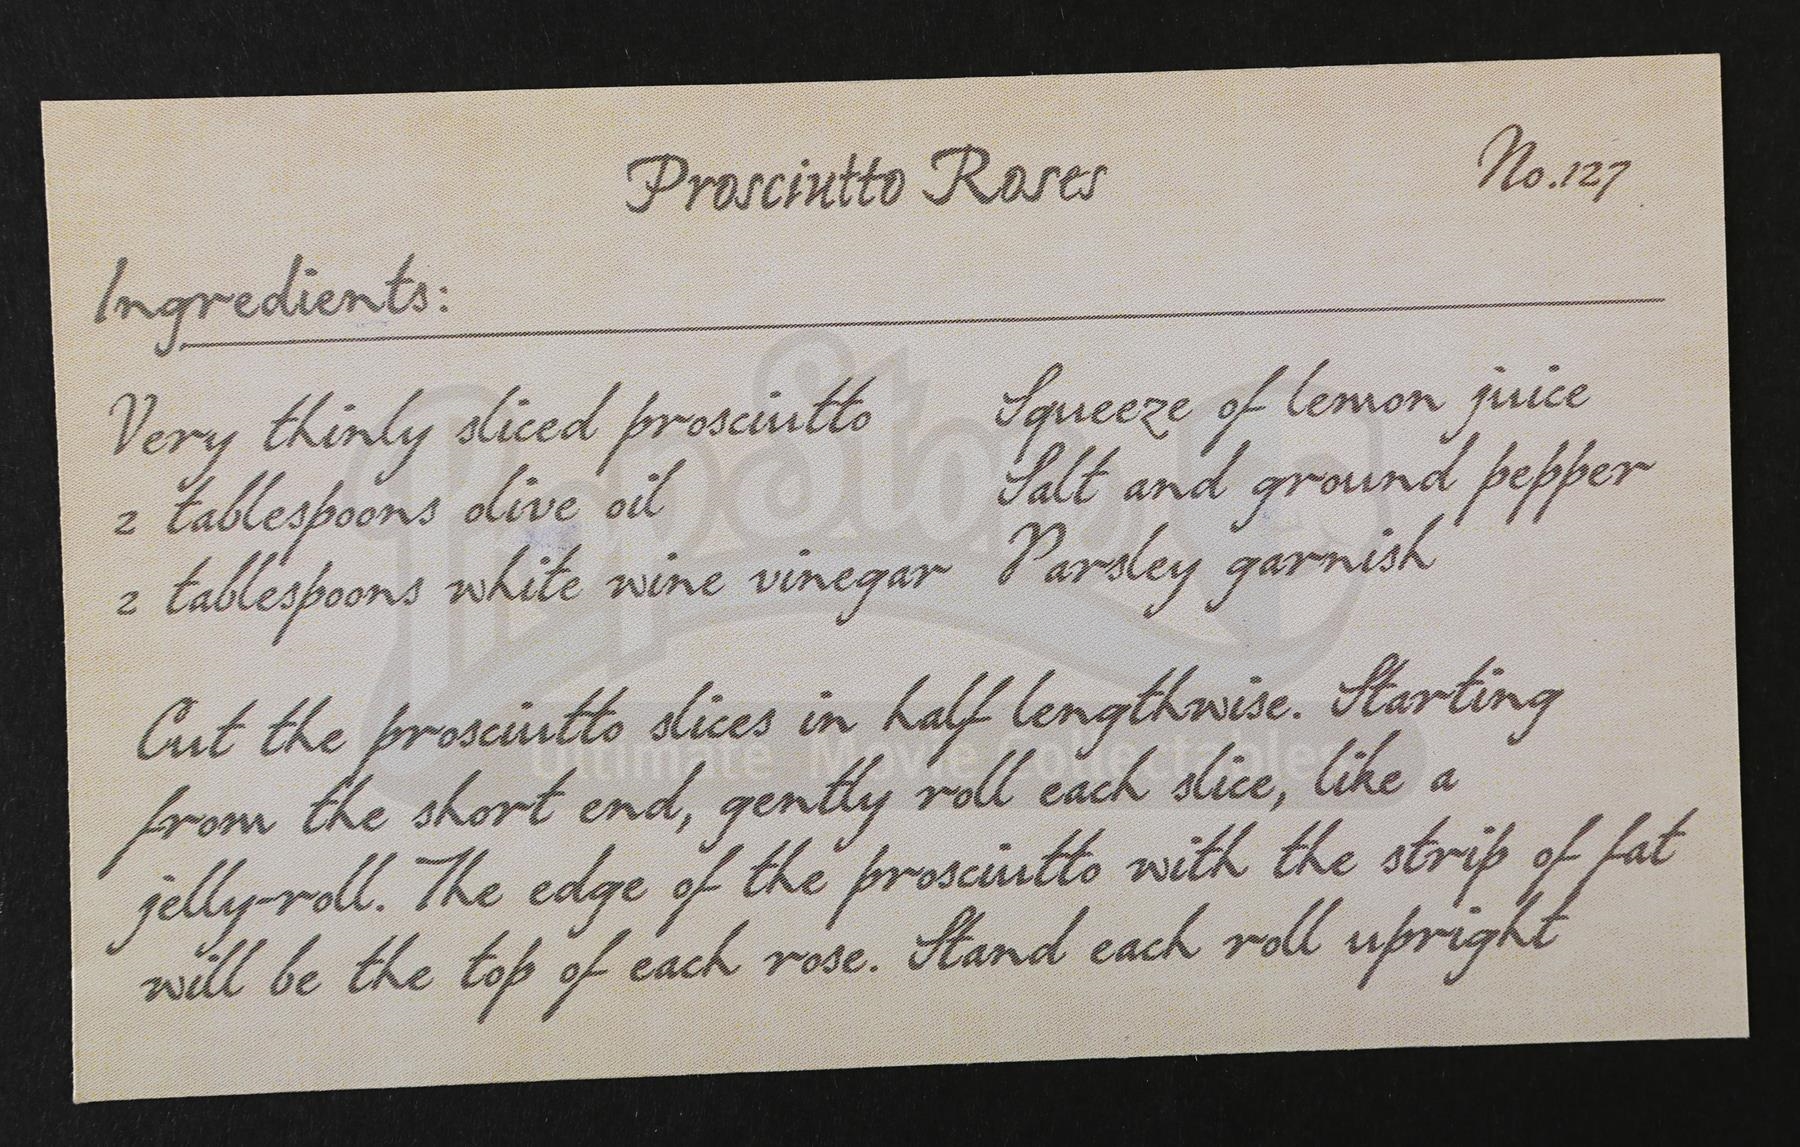 Prosciutto Roses
No.127
Ingredients:
Very thinly sliced prosciutto
2 tablespoons olive oil
2 tablespoons white wine vinegar
Squeeze of lemon juice
Salt and ground pepper
Parsley garnish
Cut the prosciutto slices in half lengthwise. Starting
from the short end, gently roll each slice, like a
jelly-roll. The edge of the prosciutto with the strip of fat
will be the top of each rose. Stand each roll upright
Propstore
Ultimate Movie Collectables